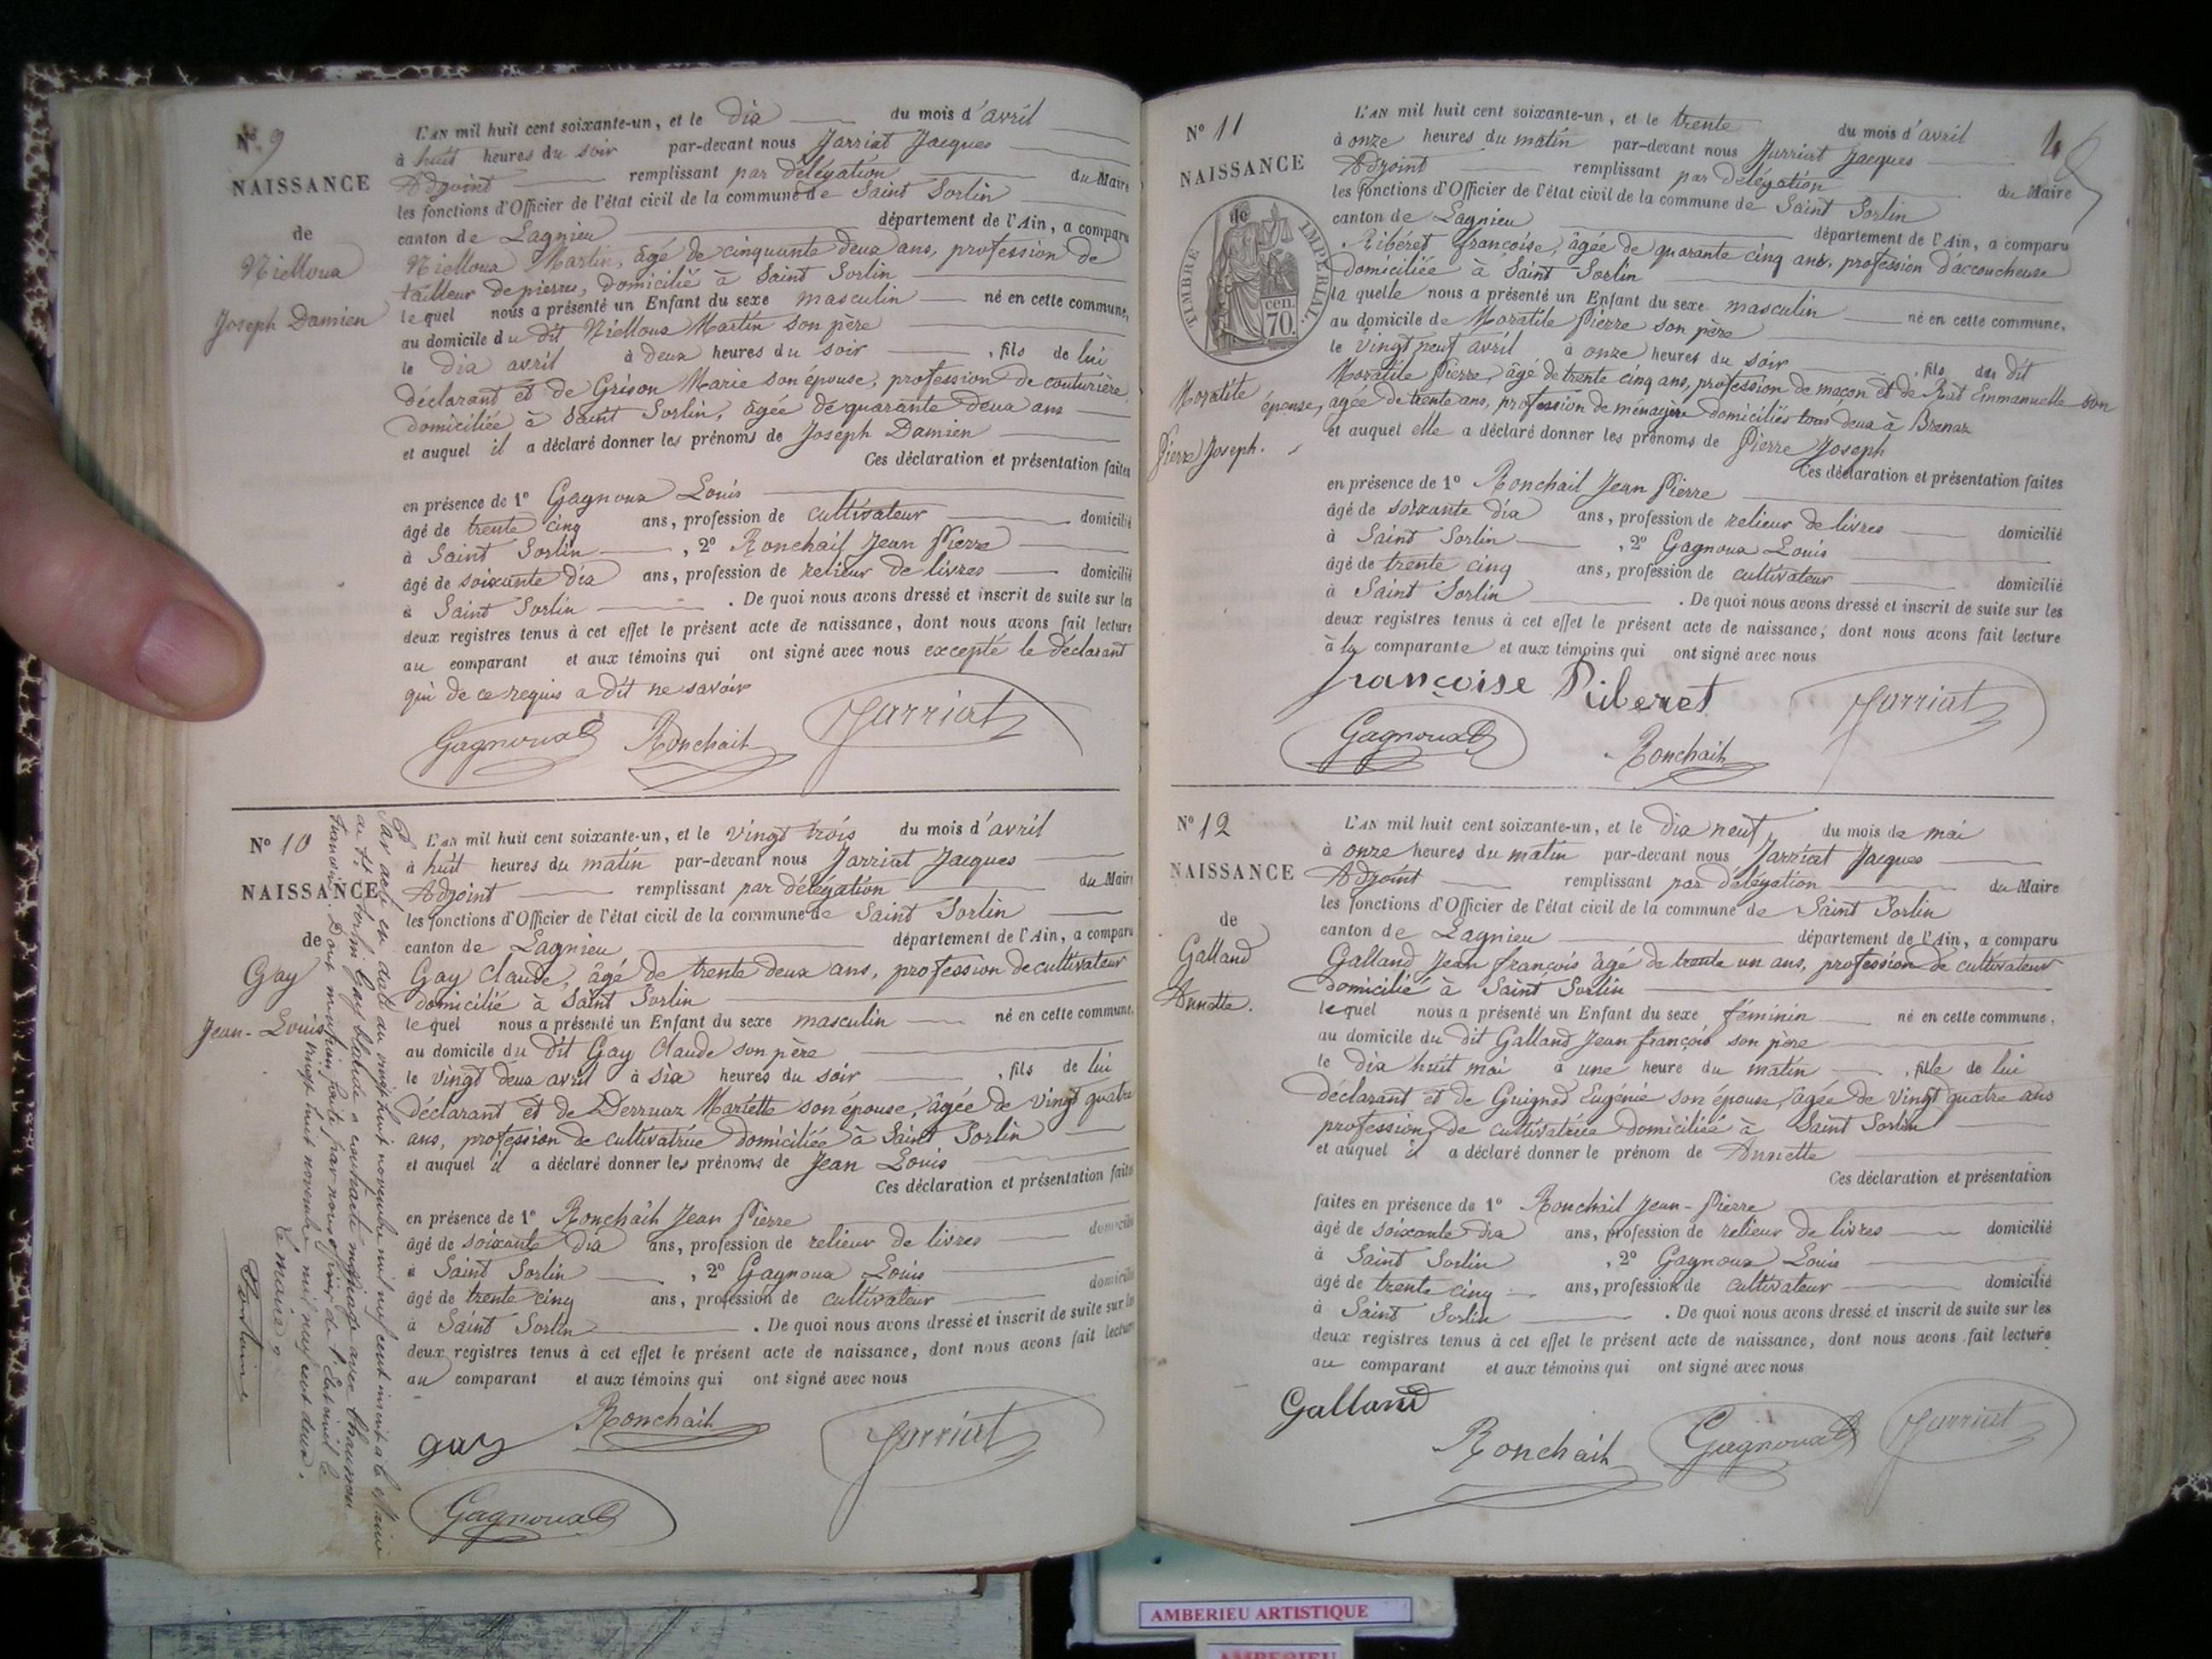 N° 9
NAISSANCE
de
Niélloux
Joseph Damien
L'AN mil huit cent soixante-un, et le dix du mois d'avril
à huit heures du soir par-devant nous Jarriat Jacques
Adjoint remplissant par délégation du Maire
les fonctions d'Officier de l'état civil de la commune de Saint Sorlin
canton de Lagnieu département de l'Ain, a comparu
Niélloux Martin, âgé de cinquante deux ans, profession de
tailleur de pierres, domicilié à Saint Sorlin
lequel nous a présenté un Enfant du sexe masculin né en cette commune,
au domicile du dit Niélloux Martin son père
le dix avril à deux heures du soir, fils de lui
déclarant et de Grison Marie son épouse, profession de couturière,
domiciliée à Saint Sorlin, âgée de quarante deux ans
et auquel il a déclaré donner les prénoms de Joseph Damien
Ces déclaration et présentation faites
en présence de 1° Gagnoux Louis
âgé de trente cinq ans, profession de cultivateur domicilié
à Saint Sorlin, 2° Ronchail Jean Pierre
âgé de soixante dix ans, profession de relieur de livres domicilié
à Saint Sorlin. De quoi nous avons dressé et inscrit de suite sur les
deux registres tenus à cet effet le présent acte de naissance, dont nous avons fait lecture
au comparant et aux témoins qui ont signé avec nous excepté le déclarant
qui de ce requis a dit ne savoir
Gagnoux Ronchail Jarriat
N° 10
NAISSANCE
de
Gay
Jean-Louis
L'AN mil huit cent soixante-un, et le vingt trois du mois d'avril
à huit heures du matin par-devant nous Jarriat Jacques
Adjoint remplissant par délégation du Maire
les fonctions d'Officier de l'état civil de la commune de Saint Sorlin
canton de Lagnieu département de l'Ain, a comparu
Gay Claude, âgé de trente deux ans, profession de cultivateur
domicilié à Saint Sorlin
lequel nous a présenté un Enfant du sexe masculin né en cette commune,
au domicile du dit Gay Claude son père
le vingt deux avril à six heures du soir, fils de lui
déclarant et de Derruaz Mariette son épouse, âgée de vingt quatre
ans, profession de cultivatrice domiciliée à Saint Sorlin
et auquel il a déclaré donner les prénoms de Jean Louis
Ces déclaration et présentation faites
en présence de 1° Ronchail Jean Pierre
âgé de soixante dix ans, profession de relieur de livres domicilié
à Saint Sorlin, 2° Gagnoux Louis
âgé de trente cinq ans, profession de cultivateur domicilié
à Saint Sorlin. De quoi nous avons dressé et inscrit de suite sur les
deux registres tenus à cet effet le présent acte de naissance, dont nous avons fait lecture
au comparant et aux témoins qui ont signé avec nous
gay Ronchail Jarriat
Gagnoux
Par acte en date du vingt huit novembre mil neuf cent inscrit à la Mairie
de St Sorlin Gay a contracté mariage avec Chaumon
Francine. Dont mention faite par nous officier de l'Etat civil le
vingt huit novembre mil neuf cent deux.
Le maire
N° 11
NAISSANCE
de
TIMBRE IMPERIAL
70 cen.
Moratite
Pierre Joseph.
L'AN mil huit cent soixante-un, et le trente du mois d'avril
à onze heures du matin par-devant nous Jarriat Jacques
Adjoint remplissant par délégation du Maire
les fonctions d'Officier de l'état civil de la commune de Saint Sorlin
canton de Lagnieu département de l'Ain, a comparu
Ribéret françoise, âgée de quarante cinq ans, profession d'accoucheuse
domiciliée à Saint Sorlin
la quelle nous a présenté un Enfant du sexe masculin né en cette commune,
au domicile de Moratite Pierre son père
le vingt neuf avril à onze heures du soir, fils du dit
Moratite Pierre, âgé de trente cinq ans, profession de maçon et de Rat Emmanuelle son
épouse, âgée de trente ans, profession de ménagère domiciliés tous deux à Brenaz
et auquel elle a déclaré donner les prénoms de Pierre Joseph
Ces déclaration et présentation faites
en présence de 1° Ronchail Jean Pierre
âgé de soixante dix ans, profession de relieur de livres domicilié
à Saint Sorlin, 2° Gagnoux Louis
âgé de trente cinq ans, profession de cultivateur domicilié
à Saint Sorlin. De quoi nous avons dressé et inscrit de suite sur les
deux registres tenus à cet effet le présent acte de naissance, dont nous avons fait lecture
à la comparante et aux témoins qui ont signé avec nous
françoise Riberet Jarriat
Gagnoux Ronchail
N° 12
NAISSANCE
de
Galland
Annette.
L'AN mil huit cent soixante-un, et le dix neuf du mois de mai
à onze heures du matin par-devant nous Jarriat Jacques
Adjoint remplissant par délégation du Maire
les fonctions d'Officier de l'état civil de la commune de Saint Sorlin
canton de Lagnieu département de l'Ain, a comparu
Galland Jean françois âgé de trente un ans, profession de cultivateur
domicilié à Saint Sorlin
lequel nous a présenté un Enfant du sexe féminin né en cette commune,
au domicile du dit Galland Jean françois son père
le dix huit mai à une heure du matin, fille de lui
déclarant et de Guignod Eugénie son épouse, âgée de vingt quatre ans
profession de cultivatrice domiciliée à Saint Sorlin
et auquel il a déclaré donner le prénom de Annette
Ces déclaration et présentation
faites en présence de 1° Ronchail Jean-Pierre
âgé de soixante dix ans, profession de relieur de livres domicilié
à Saint Sorlin, 2° Gagnoux Louis
âgé de trente cinq ans, profession de cultivateur domicilié
à Saint Sorlin. De quoi nous avons dressé et inscrit de suite sur les
deux registres tenus à cet effet le présent acte de naissance, dont nous avons fait lecture
au comparant et aux témoins qui ont signé avec nous
Galland
Ronchail Gagnoux Jarriat
AMBERIEU ARTISTIQUE
AMBERIEU